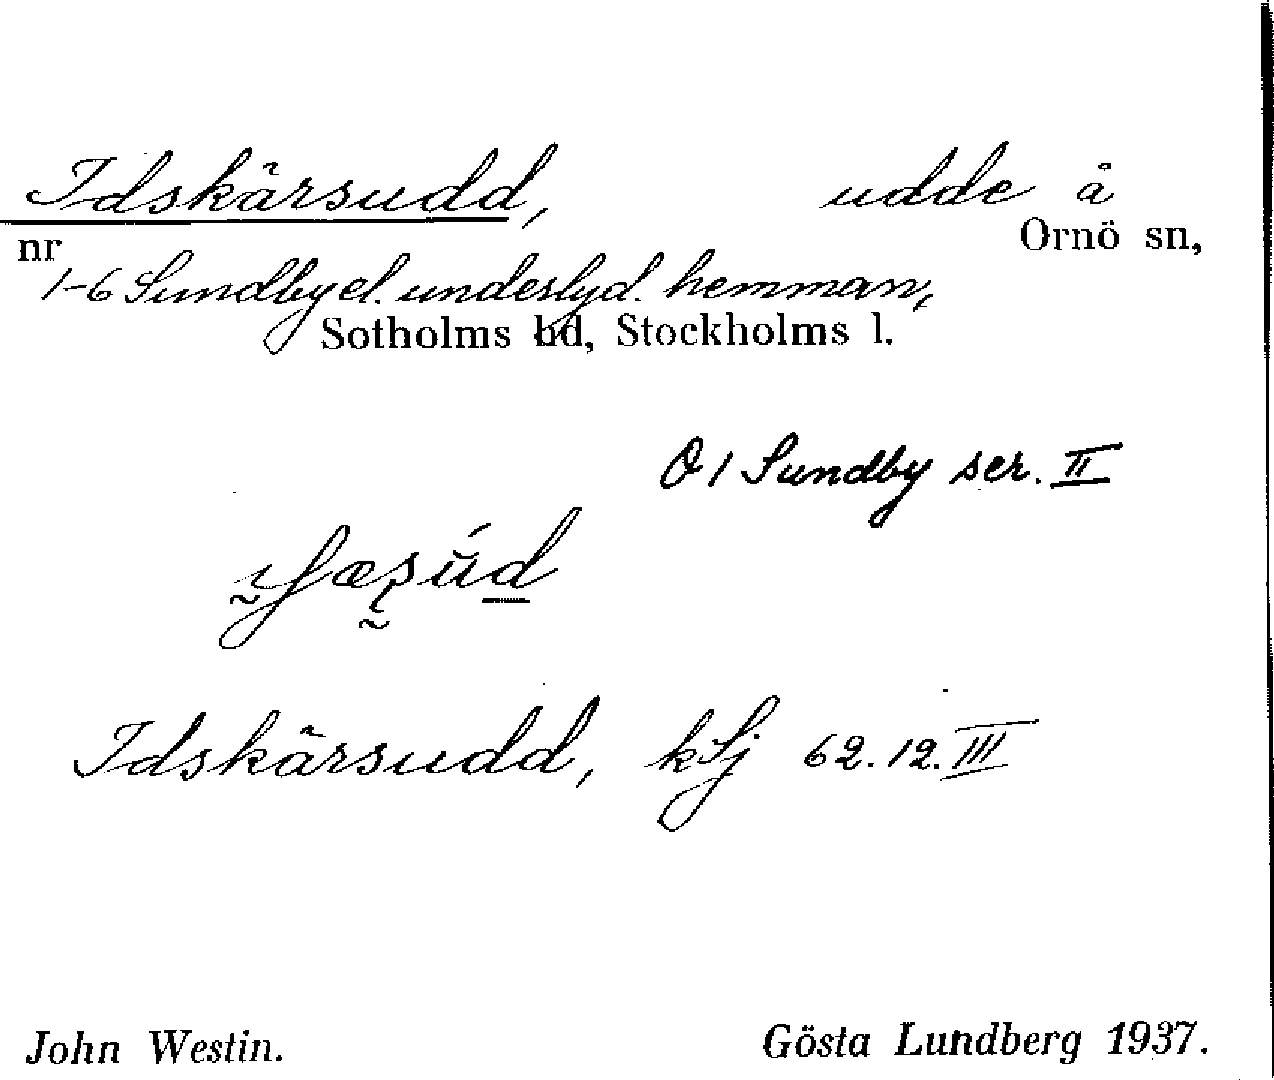 Idskärsudd, udde å
nr Ornö sn,
1-6 Sundby el. underlyd. hemman,
Sotholms hd, Stockholms l.
O 1 Sundby ser. II
Idskärsudd, kSj 62.12.III
John Westin. Gösta Lundberg 1937.